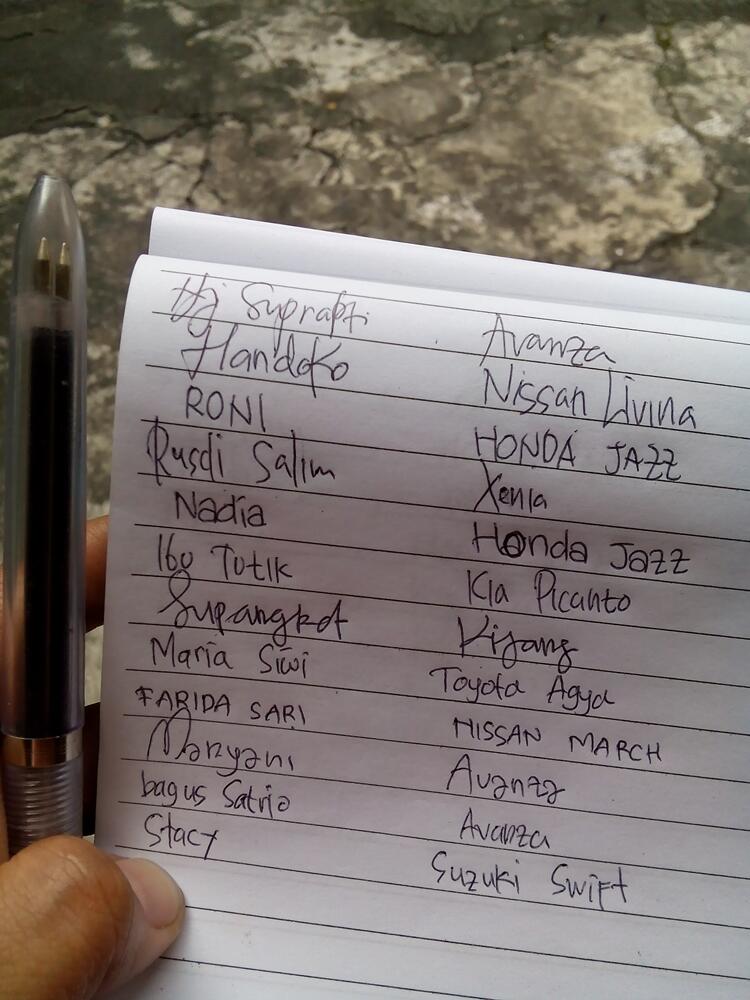 Hj Suprapti Avanza
Handoko Nissan Livina
RONI HONDA JAZZ
Rusdi Salim Xenia
Nadia Honda Jazz
Ibu Totik Kia Picanto
Supangkat Kijang
Maria Siwi Toyota Agya
FARIDA SARI NISSAN MARCH
Maryani Avanza
bagus Satrio Avanza
Stacy Suzuki Swift